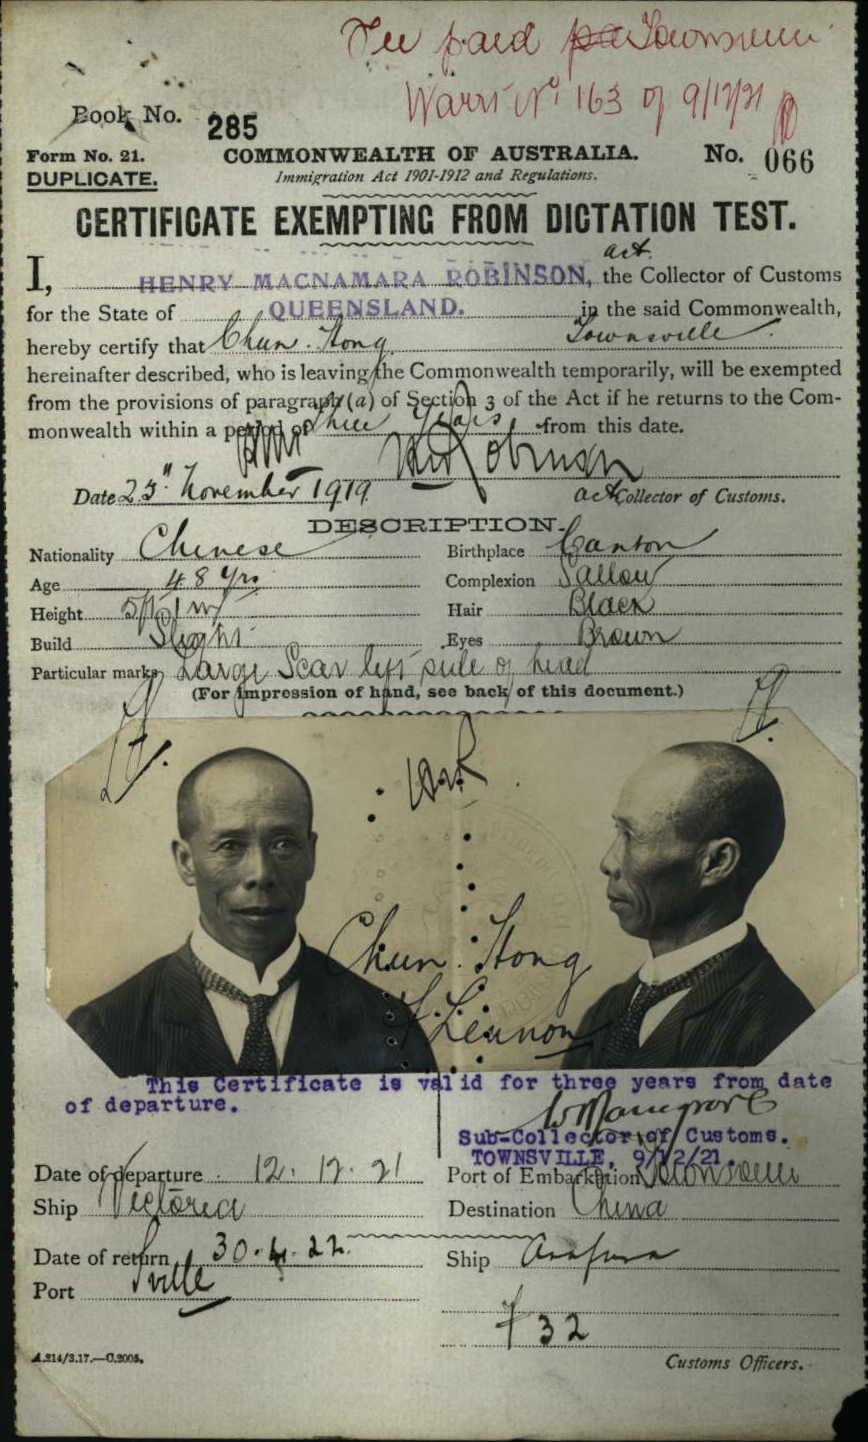 Fee paid Townsville
Warrt No 163 of 9/12/21
Book No. 285
Form No. 21. COMMONWEALTH OF AUSTRALIA. No. 066
DUPLICATE. Immigration Act 1901-1912 and Regulations.
CERTIFICATE EXEMPTING FROM DICTATION TEST.
act.
I, HENRY MACNAMARA ROBINSON, the Collector of Customs
for the State of QUEENSLAND. in the said Commonwealth,
hereby certify that Chun Hong. Townsville
hereinafter described, who is leaving the Commonwealth temporarily, will be exempted
from the provisions of paragraph (a) of Section 3 of the Act if he returns to the Com-
monwealth within a period of three years from this date.
HMR HM Robinson
Date November 1919 act Collector of Customs.
DESCRIPTION.
Nationality Chinese Birthplace Canton
Age 48 Yrs Complexion Sallow
Height 5ft 1 in Hair Black
Build Slight Eyes Brown
Particular marks Large Scar left side of head
(For impression of hand, see back of this document.)
HMR
Chun Hong
Lennon
This Certificate is valid for three years from date
of departure.
Sub-Collector of Customs.
TOWNSVILLE, 9/12/21.
Date of departure 12. 12. 21 Port of Embarkation Townsville
Ship Victoria Destination China
Date of return 30.4.22. Ship Arafura
Port Tville
F 32
A.214/3.17.—C.2005. Customs Officers.